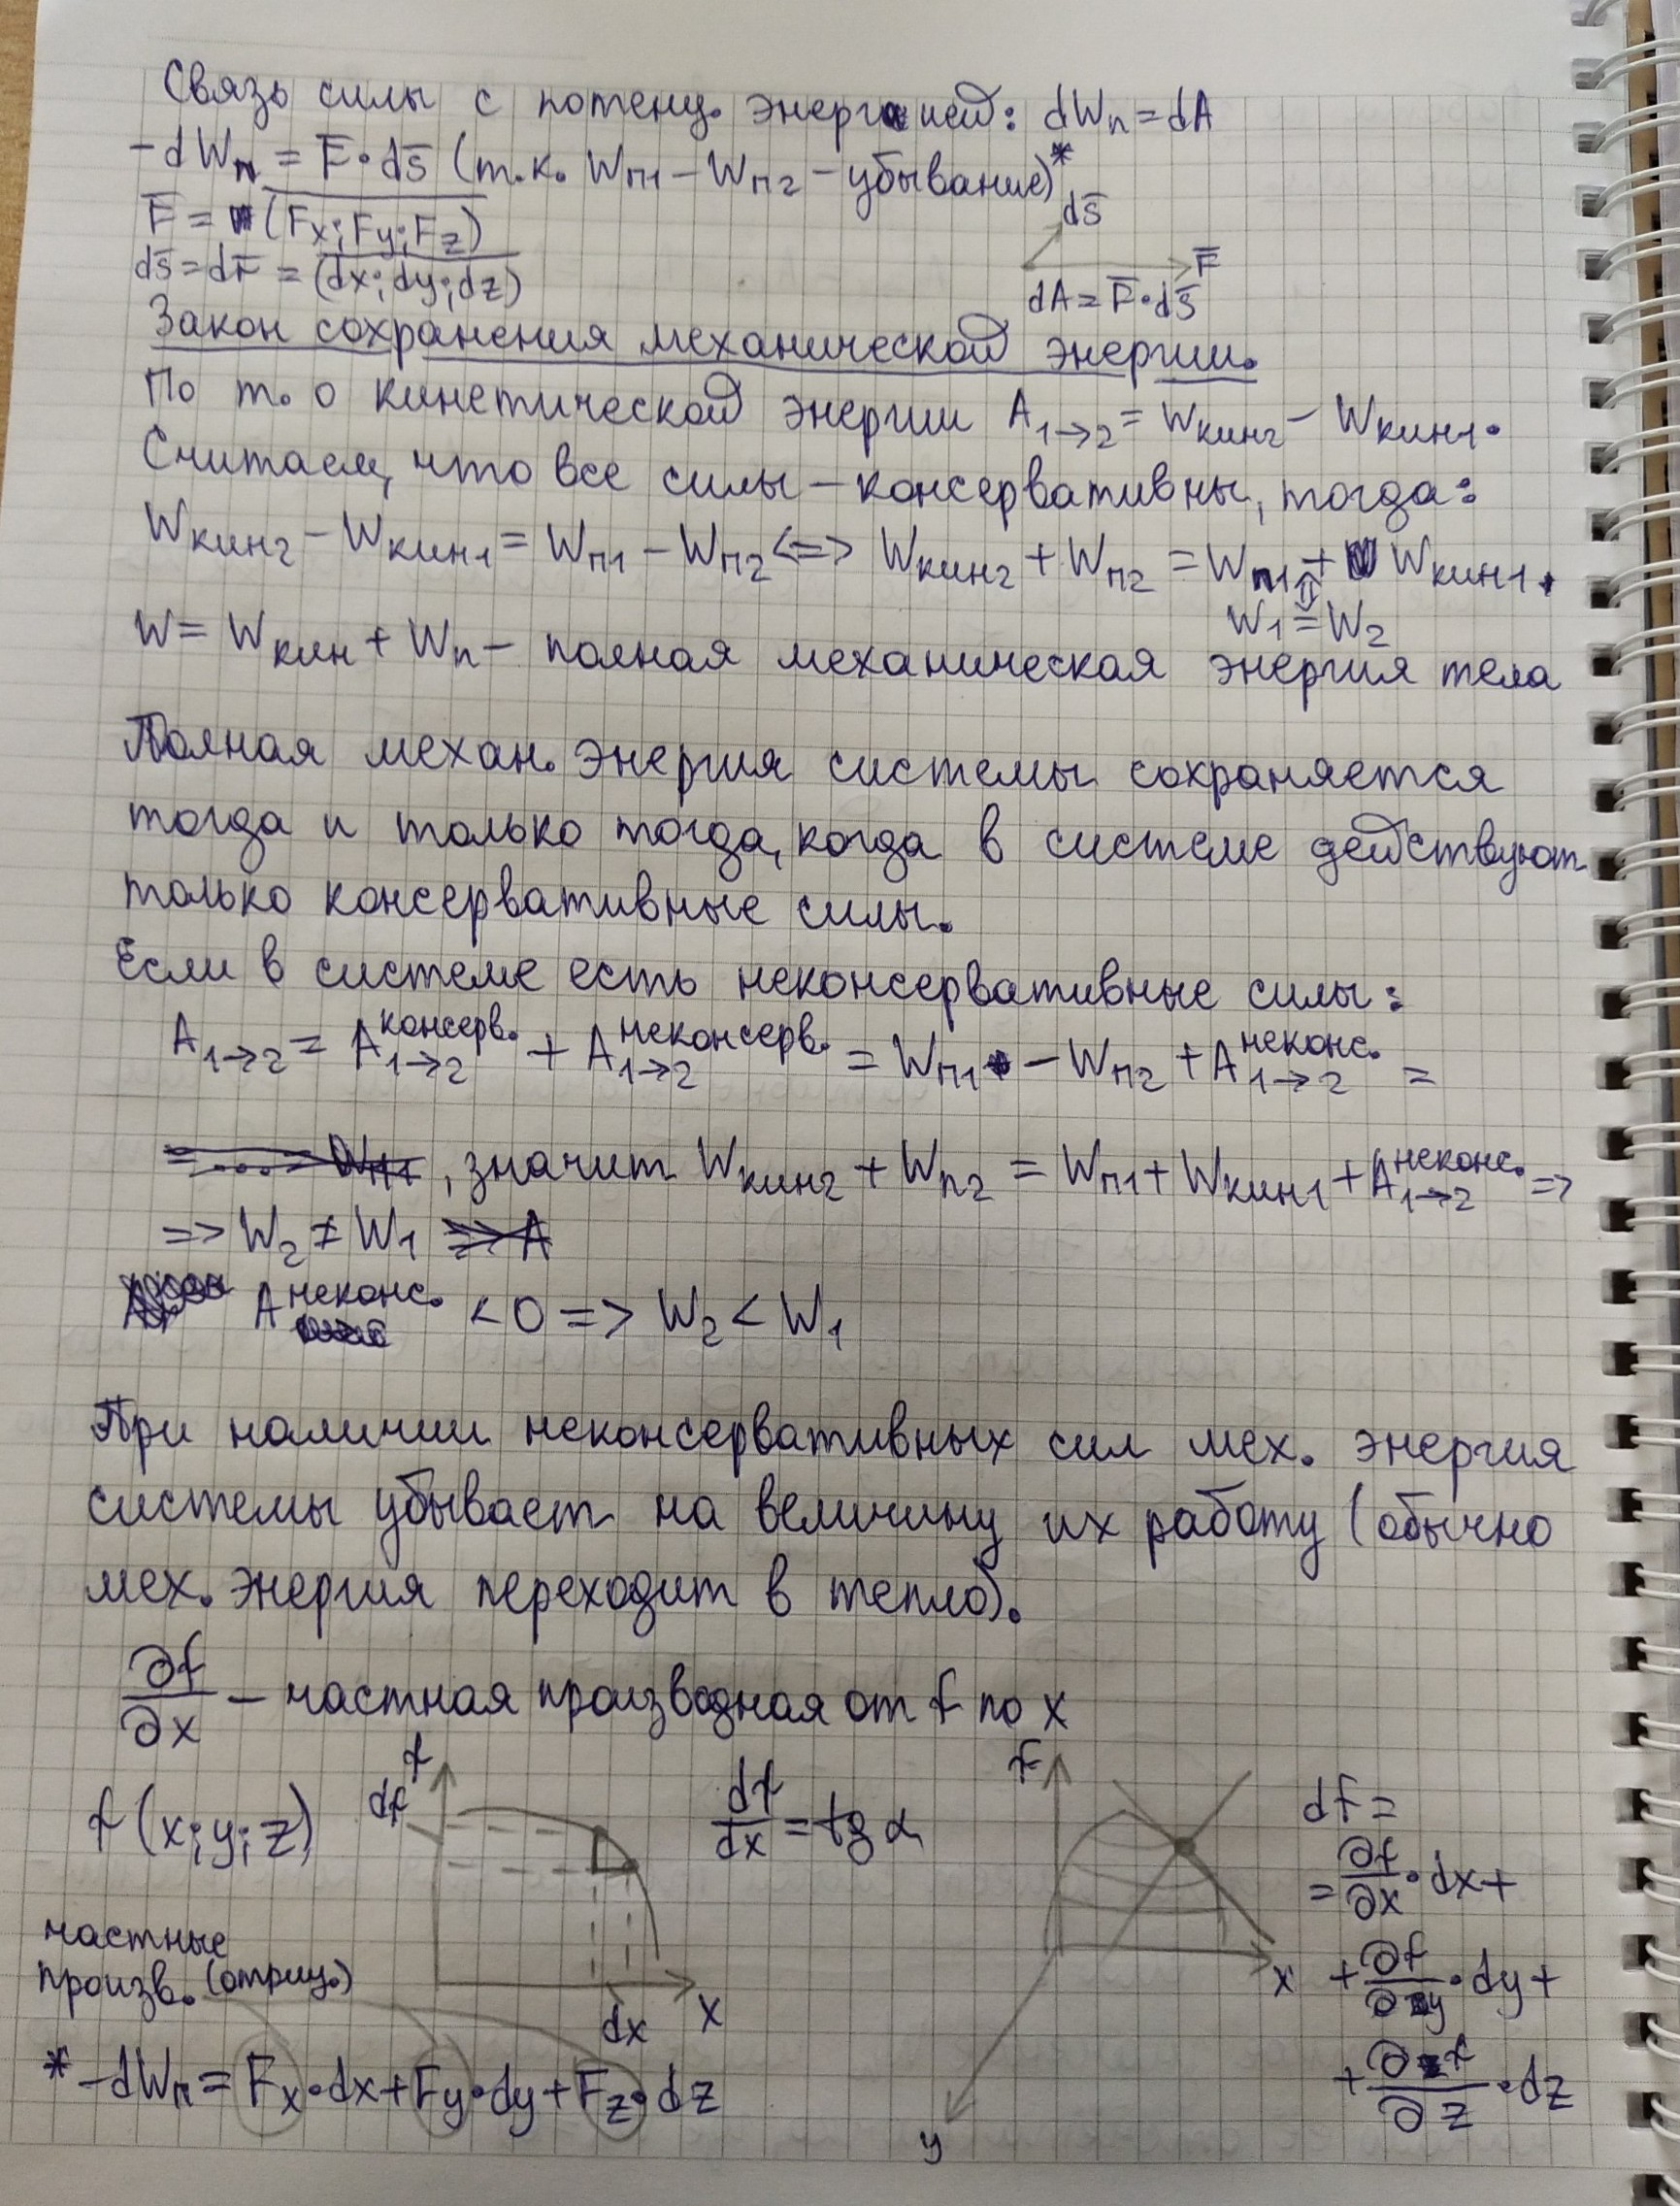 Связь силы с потенц. энергией: dWп = dA
-dWп = F̅·ds̅ (т.к. Wп1 - Wп2 - убывание)*
F̅ = (Fx; Fy; Fz)
ds̅
ds̅ = dr̅ = (dx; dy; dz)
F̅
dA = F̅·ds̅
Закон сохранения механической энергии.
По т. о кинетической энергии A1→2 = Wкин2 - Wкин1.
Считаем, что все силы - консервативны, тогда:
Wкин2 - Wкин1 = Wп1 - Wп2 <=> Wкин2 + Wп2 = Wп1 + Wкин1.
⇕
W1 = W2
W = Wкин + Wп - полная механическая энергия тела
Полная механ. энергия системы сохраняется
тогда и только тогда, когда в системе действуют
только консервативные силы.
Если в системе есть неконсервативные силы:
A1→2 = A1→2 консерв. + A1→2 неконсерв. = Wп1 - Wп2 + A1→2 неконс. =
, значит Wкин2 + Wп2 = Wп1 + Wкин1 + A1→2 неконс. =>
=> W2 ≠ W1
A неконс. < 0 => W2 < W1
При наличии неконсервативных сил мех. энергия
системы убывает на величину их работу (обычно
мех. энергия переходит в тепло).
∂f/∂x - частная производная от f по x
f(x; y; z)
f
df
dx
x
df/dx = tg α
f
x
y
df =
= ∂f/∂x · dx +
+ ∂f/∂y · dy +
+ ∂f/∂z · dz
частные
произв. (отриц.)
* -dWп = Fx·dx + Fy·dy + Fz·dz